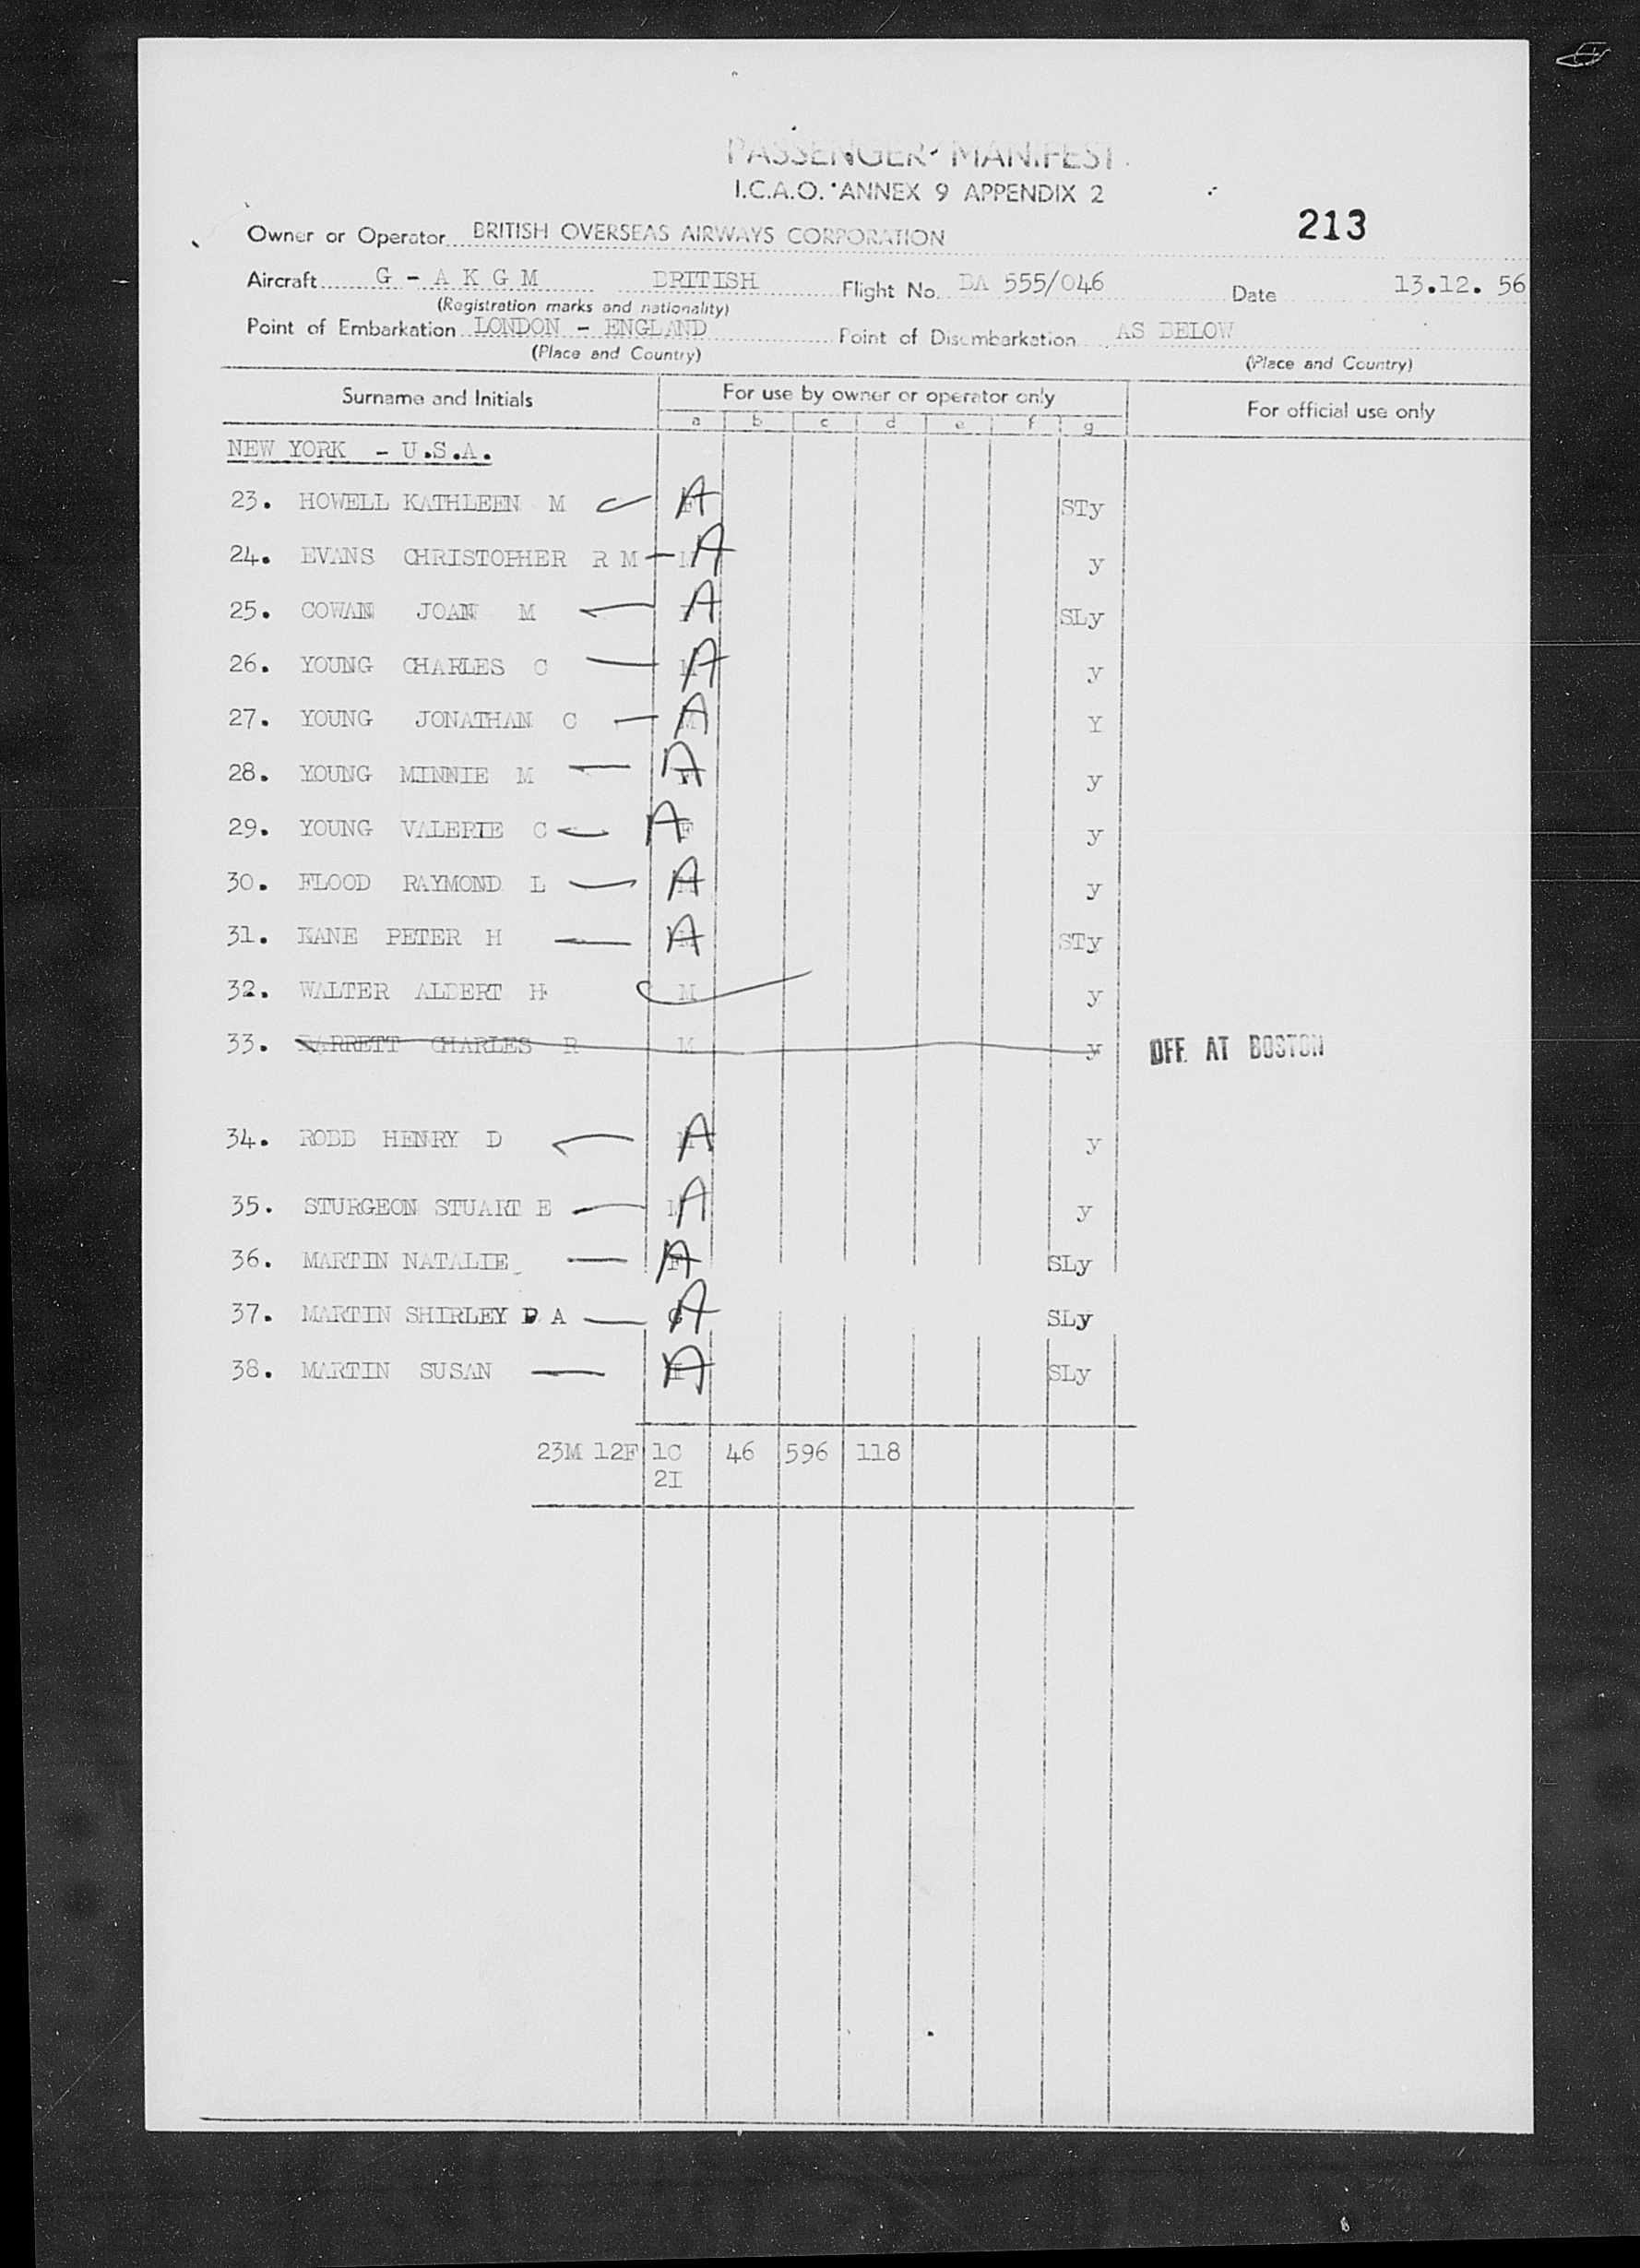 PASSENGER MANIFEST
I.C.A.O. ANNEX 9 APPENDIX 2
213
Owner or Operator BRITISH OVERSEAS AIRWAYS CORPORATION
Aircraft G - A K G M BRITISH Flight No. BA 555/046 Date 13.12. 56
(Registration marks and nationality)
Point of Embarkation LONDON - ENGLAND Point of Disembarkation AS BELOW
(Place and Country) (Place and Country)
Surname and Initials For use by owner or operator only For official use only
a b c d e f g
NEW YORK - U.S.A.
23. HOWELL KATHLEEN M A STy
24. EVANS CHRISTOPHER R M A y
25. COWAN JOAN M A SLy
26. YOUNG CHARLES C A y
27. YOUNG JONATHAN C M A Y
28. YOUNG MINNIE M F A y
29. YOUNG VALERIE C A F y
30. FLOOD RAYMOND L M A y
31. KANE PETER H A STy
32. WALTER ALBERT H M y
33. BARRETT CHARLES R M y OFF AT BOSTON
34. ROBB HENRY D M A y
35. STURGEON STUART E M A y
36. MARTIN NATALIE F A SLy
37. MARTIN SHIRLEY D A A SLy
38. MARTIN SUSAN A SLy
23M 12F 1C 46 596 118
2I